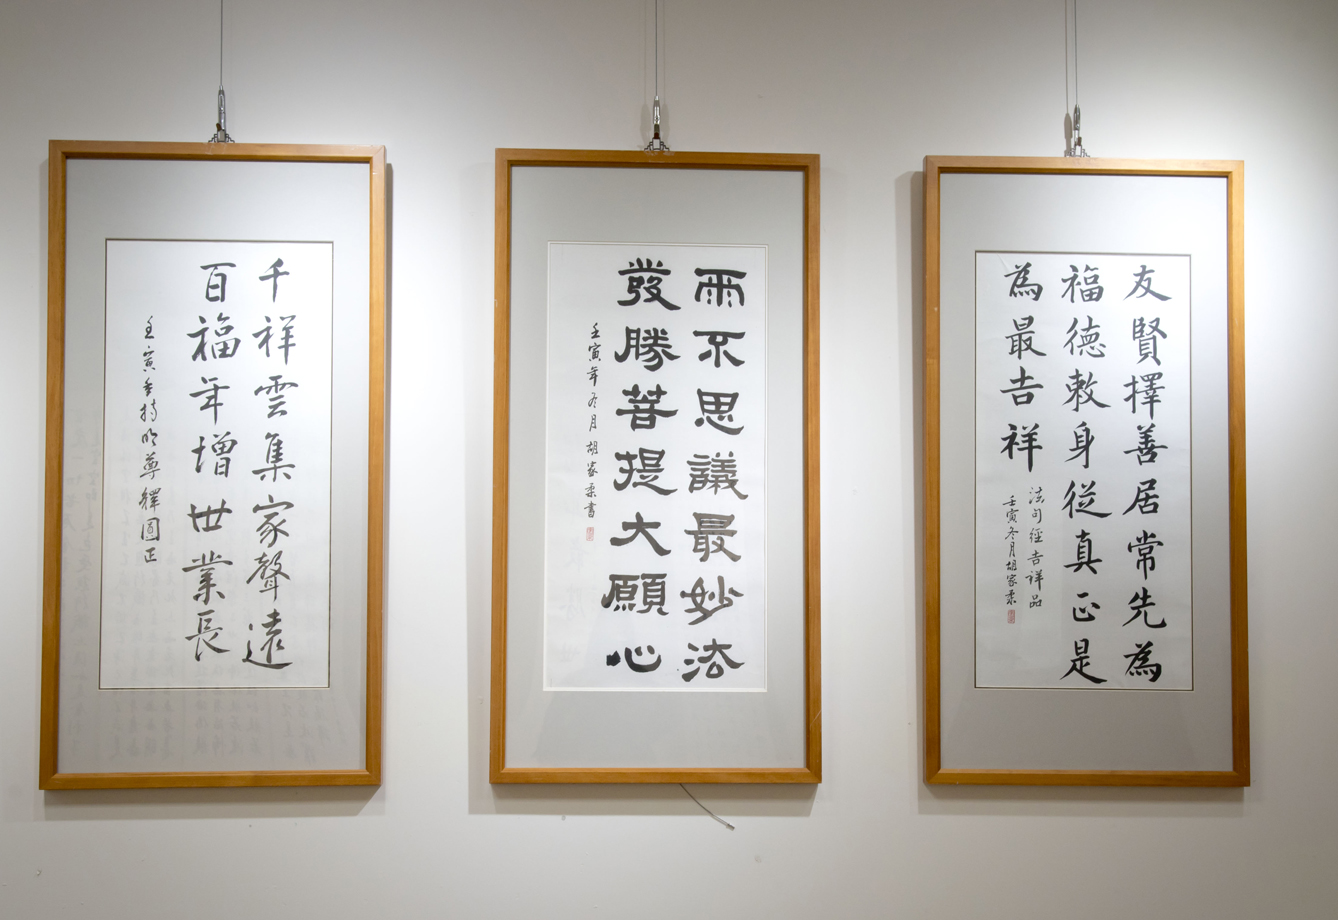 千祥雲集家聲遠
百福年增世業長
壬寅持明尊釋圓正
雨不思議最妙法
發勝菩提大願心
壬寅年冬月胡家柔書
友賢擇善居常先為
福德敕身從真正是
為最吉祥
法句經吉祥品
壬寅冬月胡家柔